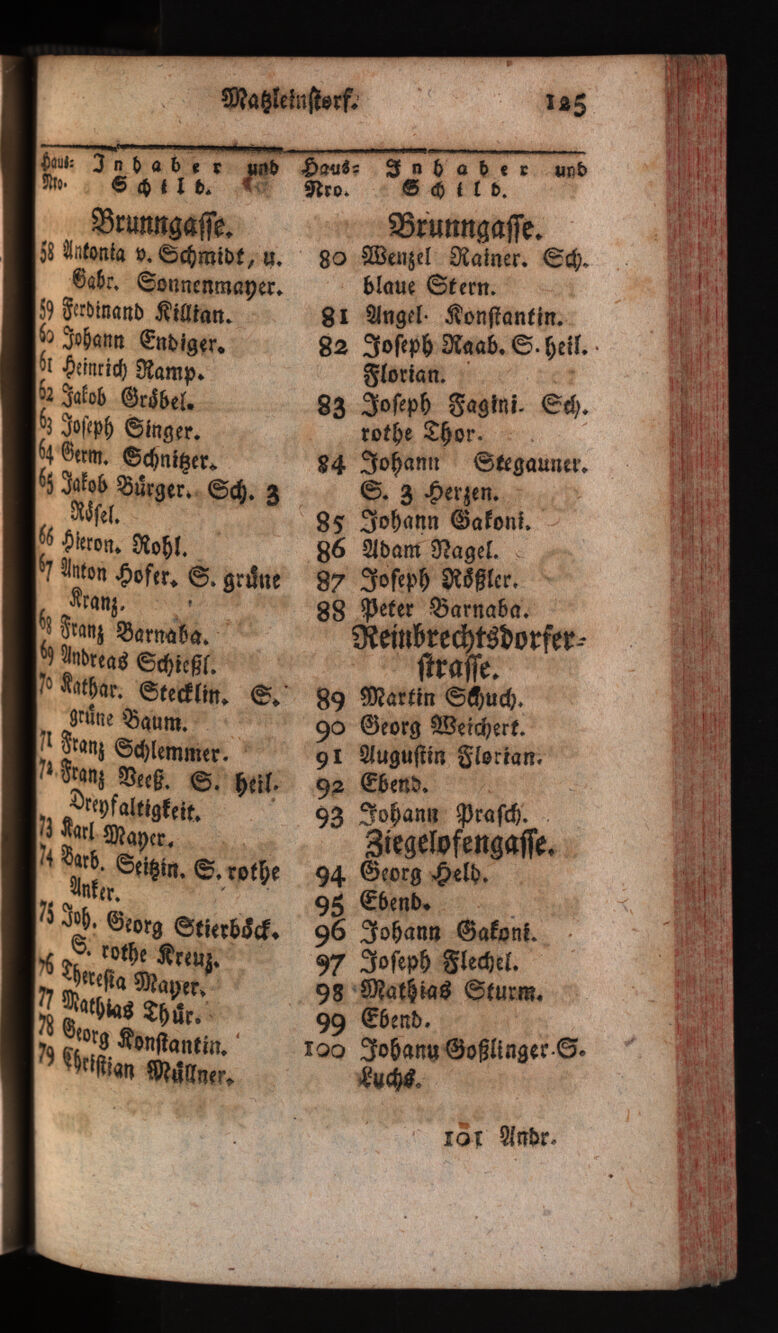 Matzleinstorf. 125
Haus= Inhaber und
Nro. Schild.
Brunngasse.
58 Antonia v. Schmidt, u.
Gabr. Sonnenmayer.
59 Ferdinand Killian.
60 Johann Endiger.
61 Heinrich Ramp.
62 Jakob Gröbel.
63 Joseph Singer.
64 Germ. Schnitzer.
65 Jakob Bürger. Sch. 3
Rösel.
66 Hieron. Rohl.
67 Anton Hofer. S. grüne
Kranz.
68 Franz Barnaba.
69 Andreas Schießl.
70 Kathar. Stecklin. S.
grüne Baum.
71 Franz Schlemmer.
72 Franz Veeß. S. heil.
Dreyfaltigkeit.
73 Karl Mayer.
74 Barb. Seitzin. S. rothe
Anker.
75 Joh. Georg Stierböck.
S. rothe Kreuz.
76 Theresia Mayer.
77 Mathias Thür.
78 Georg Konstantin.
79 Christian Müllner.
Haus= Inhaber und
Nro. Schild.
Brunngasse.
80 Wenzel Rainer. Sch.
blaue Stern.
81 Angel. Konstantin.
82 Joseph Raab. S. heil.
Florian.
83 Joseph Fagini. Sch.
rothe Thor.
84 Johann Stegauner.
S. 3 Herzen.
85 Johann Gakoni.
86 Adam Nagel.
87 Joseph Rößler.
88 Peter Barnaba.
Reinbrechtsdorfer=
strasse.
89 Martin Schuch.
90 Georg Weichert.
91 Augustin Florian.
92 Ebend.
93 Johann Prasch.
Ziegelofengasse.
94 Georg Held.
95 Ebend.
96 Johann Gakoni.
97 Joseph Flechel.
98 Mathias Sturm.
99 Ebend.
100 Johann Goßlinger. S.
Luchs.
101 Andr.